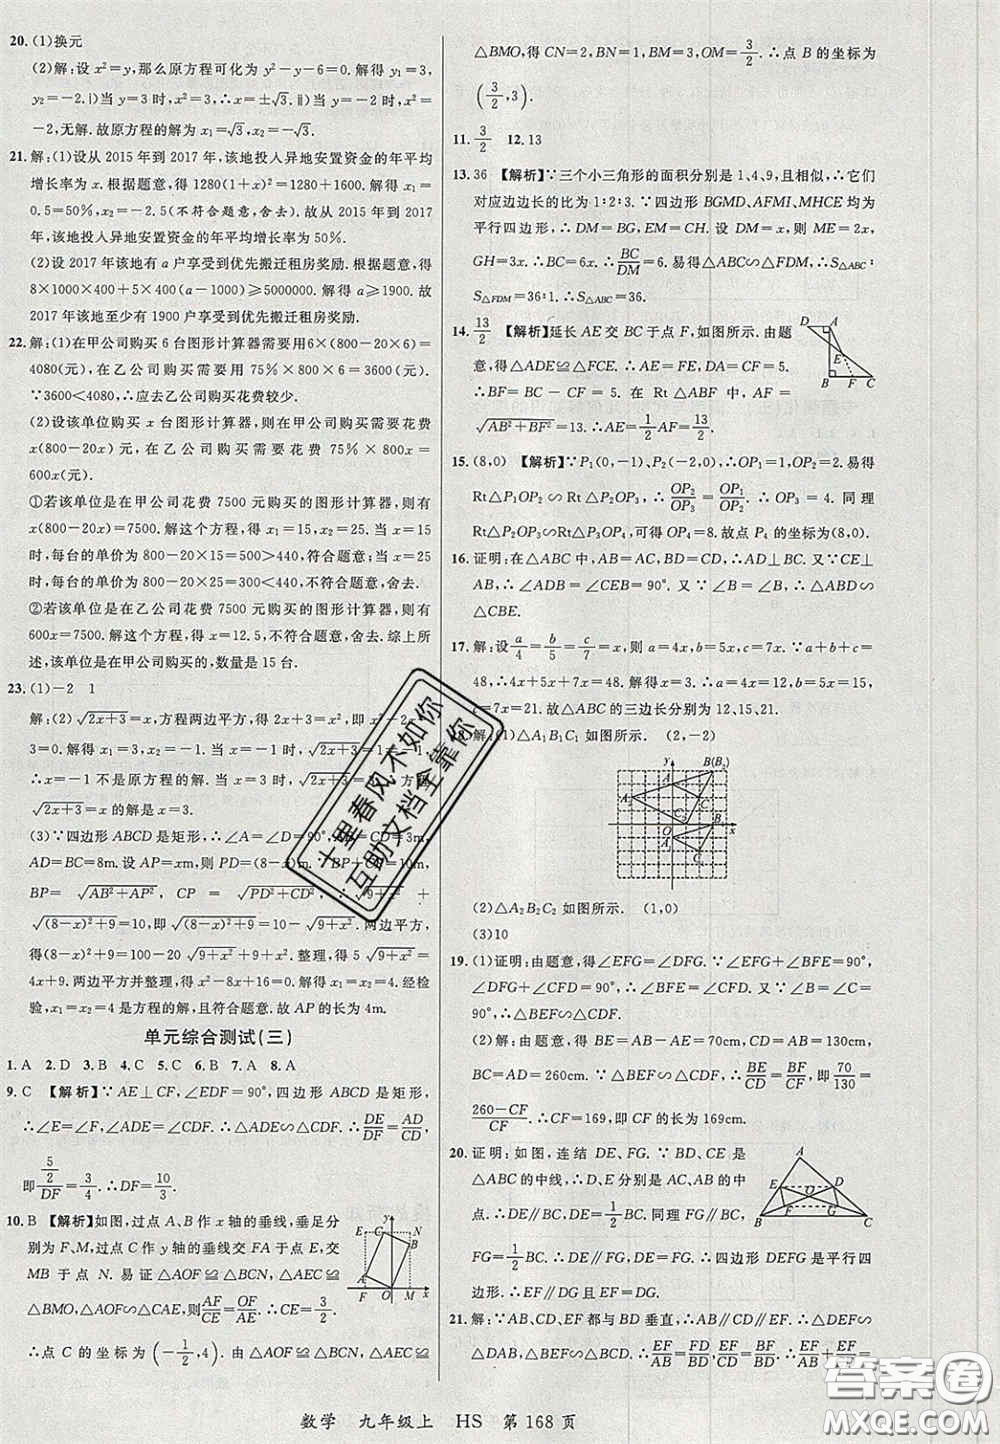 20.(1)换元
(2)解:设x²=y,那么原方程可化为y²-y-6=0.解得y₁=3,
y₂=-2.ⅰ)当y=3时,x²=3,∴x=±√3.ⅱ)当y=-2时,x²=
-2,无解.故原方程的解为x₁=√3,x₂=-√3.
21.解:(1)设从2015年到2017年,该地投入异地安置资金的年平均
增长率为x.根据题意,得1280(1+x)²=1280+1600.解得x₁=
0.5=50%,x₂=-2.5(不符合题意,舍去).故从2015年到
2017年,该地投入异地安置资金的年平均增长率为50%.
(2)设2017年该地有a户享受到优先搬迁租房奖励.根据题意,得
8×1000×400+5×400(a-1000)≥5000000.解得a≥1900.故
2017年该地至少有1900户享受到优先搬迁租房奖励.
22.解:(1)在甲公司购买6台图形计算器需要用6×(800-20×6)=
4080(元),在乙公司购买需要用75%×800×6=3600(元).
∵3600<4080,∴应去乙公司购买花费较少.
(2)设该单位购买x台图形计算器,则在甲公司购买需要花费
x(800-20x)元,在乙公司购买需要花费75%×800x=
600x(元).
①若该单位是在甲公司花费7500元购买的图形计算器,则有
x(800-20x)=7500.解这个方程,得x₁=15,x₂=25.当x=15
时,每台的单价为800-20×15=500>440,符合题意;当x=25
时,每台的单价为800-20×25=300<440,不符合题意,舍去.
②若该单位是在乙公司花费7500元购买的图形计算器,则有
600x=7500.解这个方程,得x=12.5,不符合题意,舍去.综上所
述,该单位是在甲公司购买的,数量是15台.
23.(1)-2 1
解:(2)√(2x+3)=x,方程两边平方,得2x+3=x²,即x²-2x-
3=0.解得x₁=3,x₂=-1.当x=-1时,√(2x+3)=√1=1≠-1,
∴x=-1不是原方程的解.
√(2x+3)=x的解是x=3.
(3)∵四边形ABCD是矩形,∴∠A=∠D=90°,AB=CD=3m,
AD=BC=8m.设AP=xm,则PD=(8-x)m.
BP=√(AB²+AP²),CP=√(PD²+CD²),∴√(9+x²)+
√((8-x)²+9)=10,即√((8-x)²+9)=10-√(9+x²).两边平方,
得(8-x)²+9=100-20√(9+x²)+9+x².整理,得5√(9+x²)=
4x+9.两边平方并整理,得x²-8x+16=0.解得x₁=x₂=4.经检
验,x₁=x₂=4是方程的解,且符合题意.故AP的长为4m.
单元综合测试(三)
1.A 2.D 3.B 4.C 5.C 6.B 7.B 8.A
9.C 【解析】∵AE⊥CF,∠EDF=90°,四边形ABCD是矩形,
∴∠E=∠F,∠ADE=∠CDF.∴△ADE∽△CDF.∴DE/DF=AD/CD,
即(5/2)/DF=3/4.∴DF=10/3.
10.B 【解析】如图,过点A、B作x轴的垂线,垂足分
别为F、M,过点C作y轴的垂线交FA于点E,交
MB于点N.易证△AOF≌△BCN,△AEC≌
△BMO,△AOF∽△CAE,则AF/CE=OF/AE.∴CE=3/2.
∴点C的坐标为(-1/2,4).由△AOF≌△BCN,△AEC≌
△BMO,得CN=2,BN=1,BM=3,OM=3/2.∴点B的坐标为
(3/2,3).
11.3/2 12.13
13.36 【解析】∵三个小三角形的面积分别是1、4、9,且相似,∴它们
对应边边长的比为1:2:3.∵四边形BGMD、AFMI、MHCE均为
平行四边形,∴DM=BG,EM=CH.设DM=x,则ME=2x,
GH=3x.∴BC=6x.∴BC/DM=6.易得△ABC∽△FDM,∴S△ABC:
S△FDM=36:1.∴S△ABC=36.
14.13/2 【解析】延长AE交BC于点F,如图所示.由题
意,得△ADE≌△FCE.∴AE=FE,DA=CF=5.
∴BF=BC-CF=5.在Rt△ABF中,AF=
√(AB²+BF²)=13.∴AE=1/2AF=13/2.
15.(8,0) 【解析】∵P₁(0,-1)、P₂(-2,0),∴OP₁=1,OP₂=2.易得
Rt△P₁OP₂∽Rt△P₂OP₃,∴OP₂/OP₃=OP₁/OP₂.∴OP₃=4.同理
Rt△P₂OP₃∽Rt△P₃OP₄,可得OP₄=8.故点P₄的坐标为(8,0).
16.证明:在△ABC中,AB=AC,BD=CD,∴AD⊥BC.又∵CE⊥
AB,∴∠ADB=∠CEB=90°.又∵∠B=∠B,∴△ABD∽
△CBE.
17.解:设a/4=b/5=c/7=x,则a=4x,b=5x,c=7x.∵a+b+c=
48,∴4x+5x+7x=48,解得x=3.∴a=4x=12,b=5x=15,
c=7x=21.故△ABC的三边长分别为12、15、21.
解:(1)△A₁B₁C₁如图所示. (2,-2)
(2)△A₂B₂C₂如图所示. (1,0)
(3)10
19.(1)证明:由题意,得∠EFG=∠DFG.∵∠EFG+∠BFE=90°,
∠DFG+∠CFD=90°,∴∠BFE=∠CFD.∵∠B=∠C=90°,
∴△BEF∽△CDF.
(2)解:由题意,得BE=AB-AE=70cm,CD=AB=130cm,
BC=AD=260cm.∵△BEF∽△CDF,∴BE/CD=BF/CF,即70/130=
(260-CF)/CF.∴CF=169,即CF的长为169cm.
20.证明:如图,连结DE、FG.∵BD、CE是
△ABC的中线,∴D、E分别是AC、AB的中
点.∴DE∥BC,DE=1/2BC.同理FG∥BC,
FG=1/2BC.∴DE∥FG,DE=FG.∴四边形DEFG是平行四
边形.∴EF∥DG,EF=DG.
21.解:∵AB、CD、EF都与BD垂直,∴AB∥CD∥EF.∴△DEF∽
△DAB,△BEF∽△BCD.∴EF/AB=FD/BD,EF/CD=BF/BD.∴EF/AB+EF/CD=
十里春风不如你
互助文档全靠你
数学 九年级上 HS 第168页
答案圈
MXQE.COM